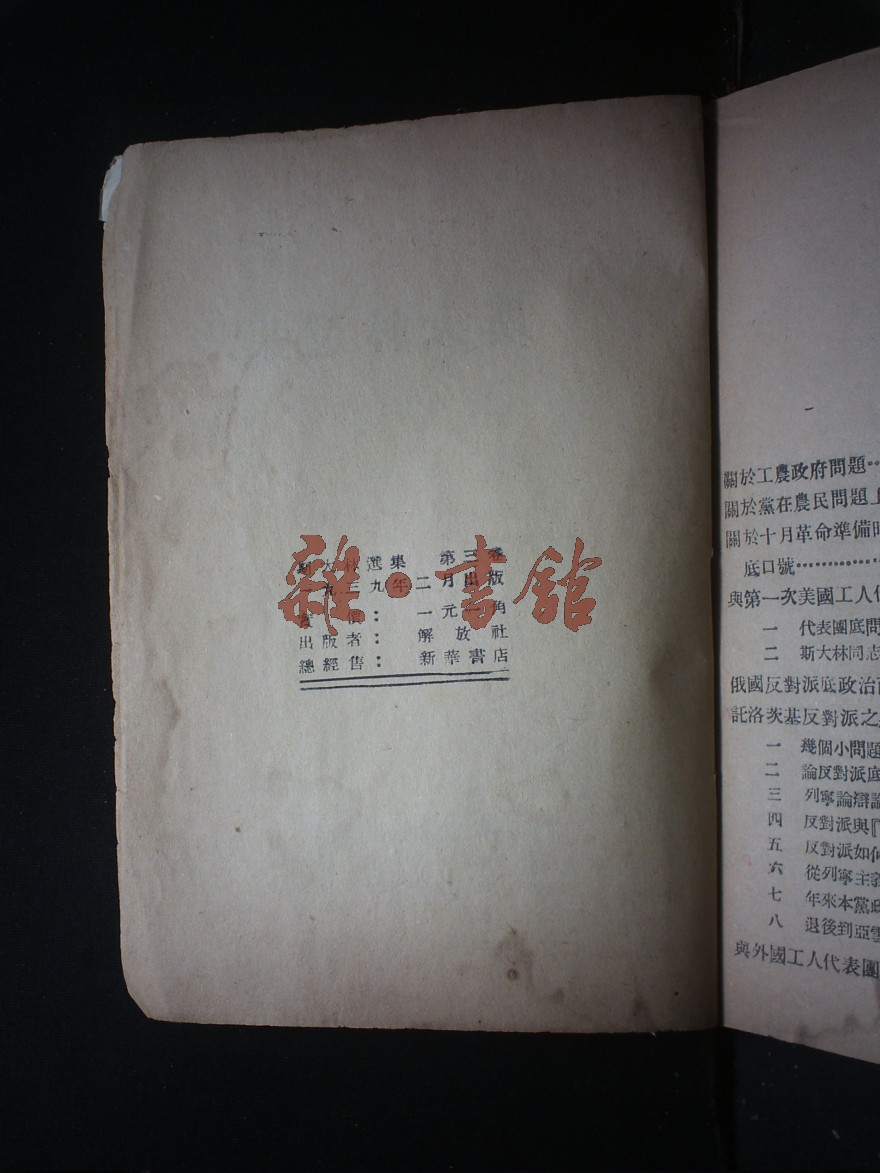 斯大林選集 第三卷
一九三九年二月出版
實價：一元二角
出版者：解放社
總經售：新華書店
雜·書館
關於工農政府問題…
關於黨在農民問題上
關於十月革命準備時
底口號…………
與第一次美國工人代
一 代表團底問
二 斯大林同志
俄國反對派底政治面
託洛茨基反對派之
一 幾個小問題
二 論反對派底
三 列寧論辯論
四 反對派與『
五 反對派如何
六 從列寧主義
七 年來本黨政
八 退後到亞雪
與外國工人代表團